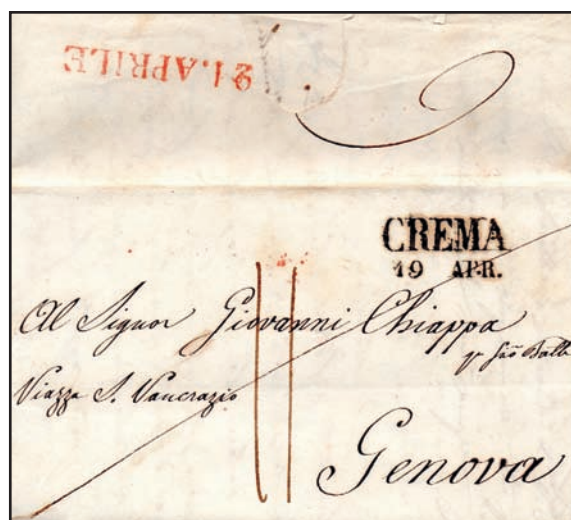 21. APRILE
CREMA
19 APR.
Al Signor Giovanni Chiappa
Piazza S. Pancrazio
Genova